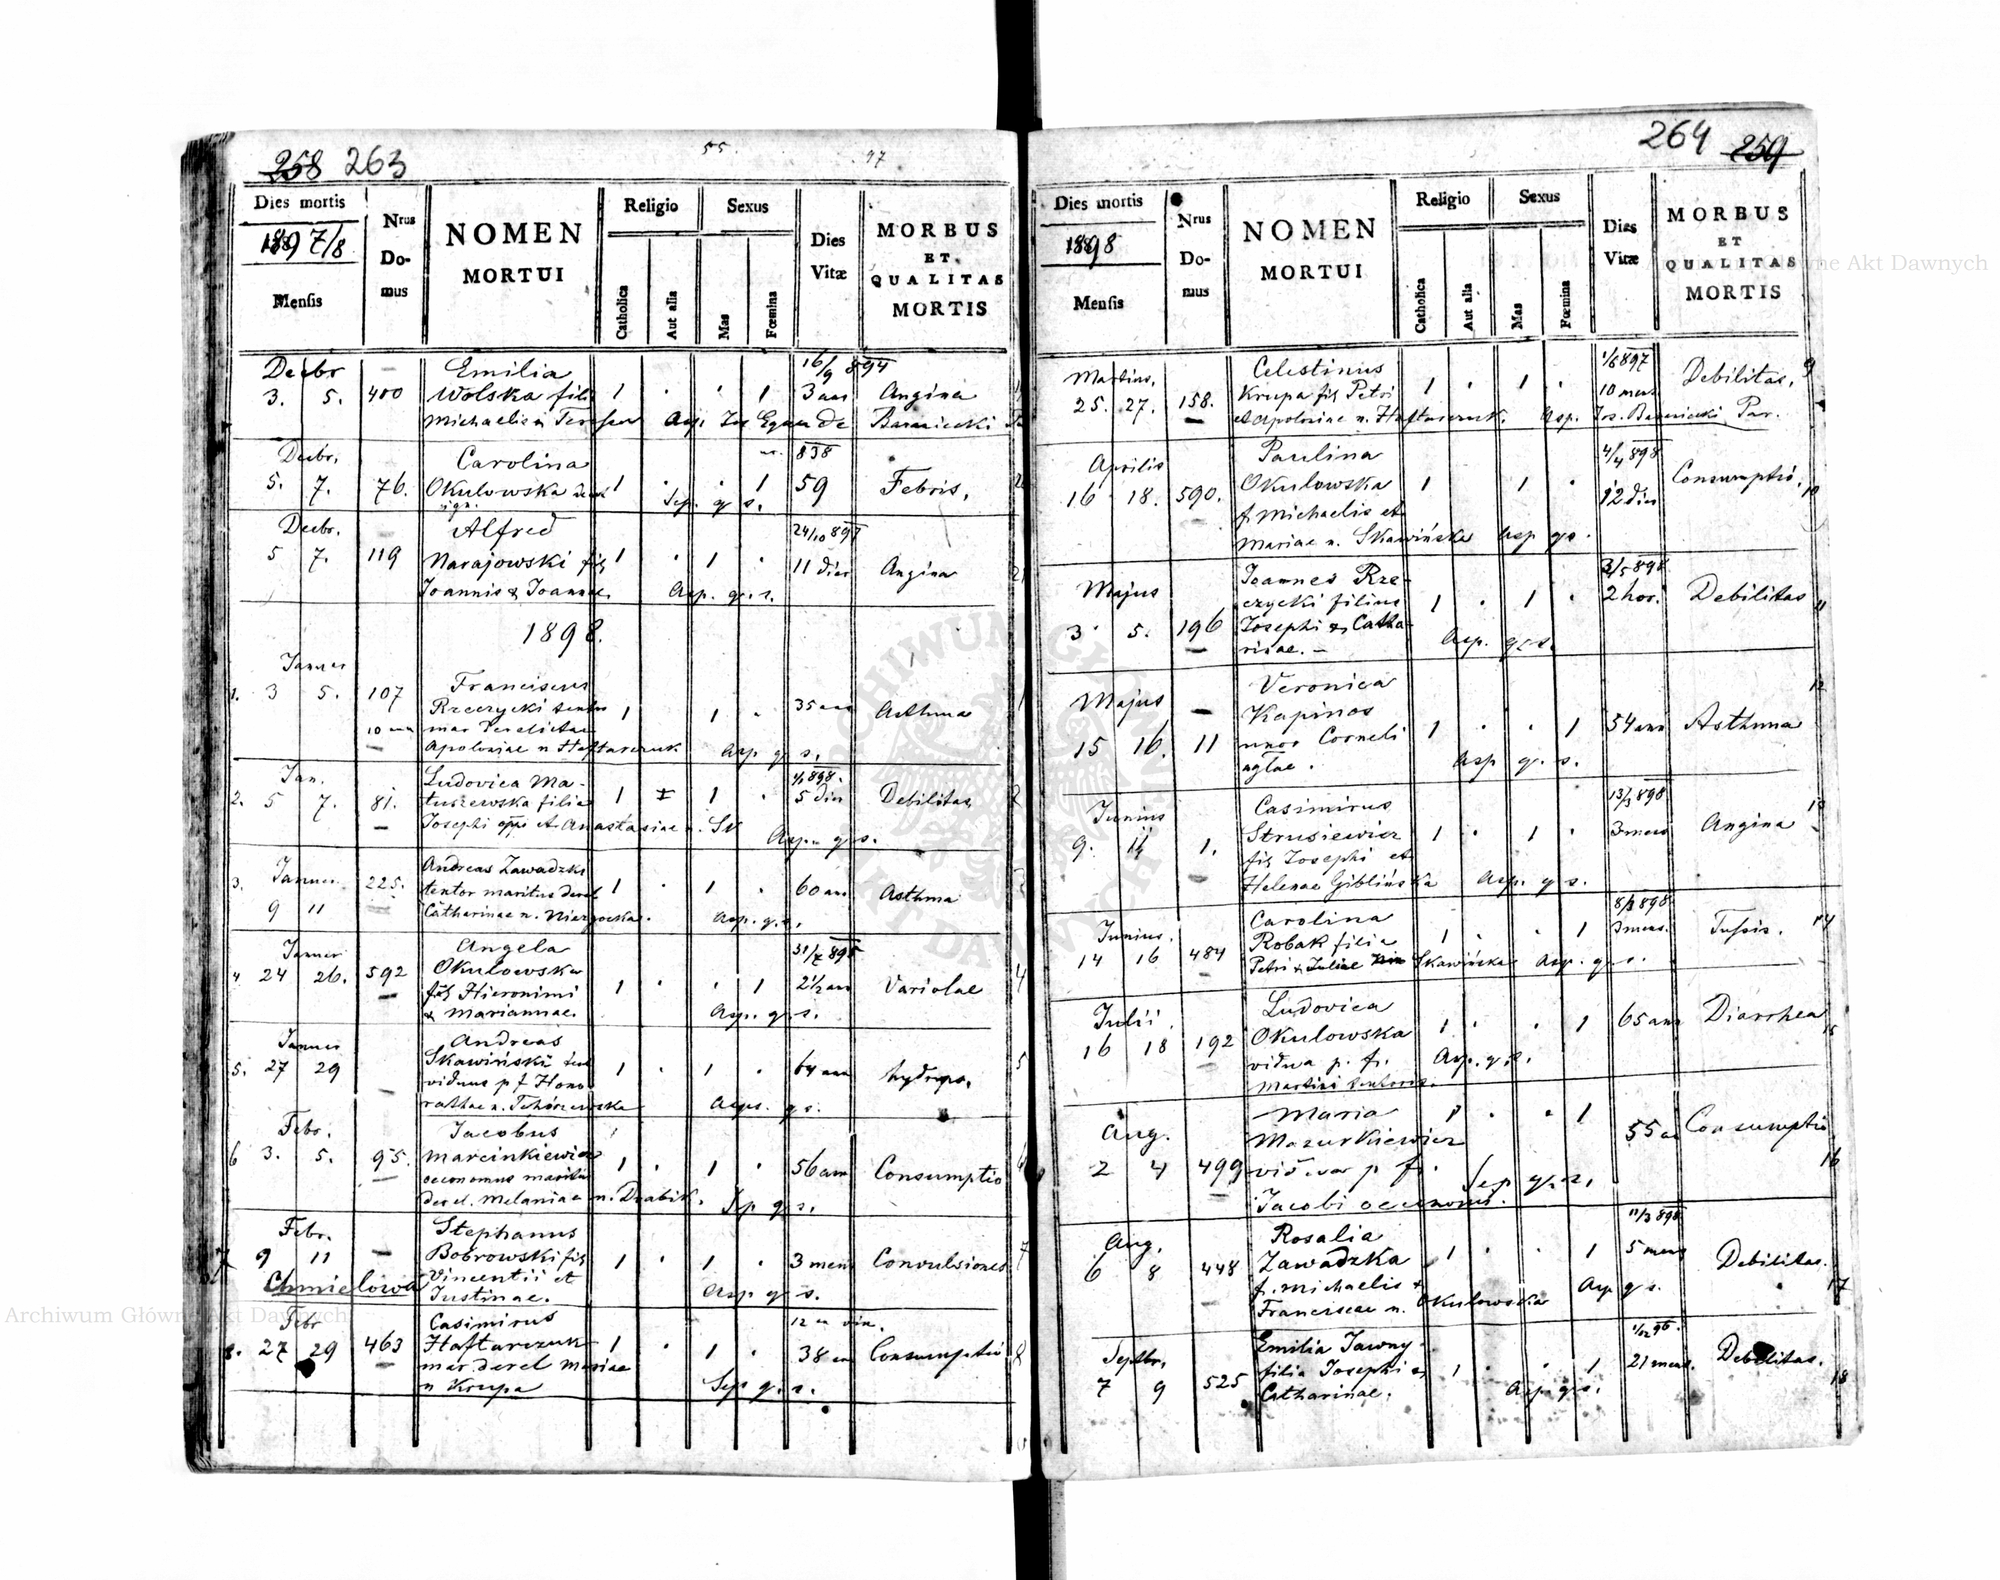 258 263
55.
97
Dies mortis
1897/8
Mensis
Nrus Domus
NOMEN
MORTUI
Religio
Catholica
Aut alia
Sexus
Mas
Fœmina
Dies Vitæ
MORBUS
ET
QUALITAS
MORTIS
Decbr
3. 5. 400
Emilia
Wolska filia
Michaelis &
1 . . 1
16/9 894
3 ann
Angina
Baraniecki
Decbr.
5. 7. 76.
Carolina
Okulowska
1 . . 1
838
59
Febris.
Sep. g. s.
Decbr.
5 7. 119
Alfred
Narajowski fil
Joannis & Joannae.
1 . 1 .
24/10 897
11 dier
Angina
Asp. g. s.
1898.
Januar
1. 3 5. 107
Franciscus
Rzeczycki
Apoloniae n Haftarczuk
1 1 .
35 ann
Asthma
Asp g. s.
Jan.
2. 5 7. 81.
Ludovica Ma-
tuszewska filia
Josephi et Anastasiae n.
1 1 .
898.
5 dier
Debilitas
Asp. g. s.
Januar.
3. 9 11 225.
Andreas Zawadzki
tentor maritus derel
Catharinae n. Niezgocka.
1 . 1 .
60 ann
Asthma
Asp. g. s.
Januar
4. 24 26. 592
Angela
Okulowska
fil Hieronimi
& Mariannae.
1 . . 1
31/7 895
2 1/2 ann
Variolae
Asp. g. s.
Januar
5. 27 29
Andreas
Skawiński
viduus p f Hono-
rathae n. Tchórzewska
1 . 1 .
64 ann
hydrops.
Asp. g. s.
Febr.
6 3. 5. 95.
Jacobus
Marcinkiewicz
oeconomus maritus
derel. Melaniae n. Drabik.
1 . 1 .
56 ann
Consumptio
Sep g. s.
Febr.
7 9 11
Chmielowa
Stephanus
Bobrowski fil
Vincentii et
Justinae.
1 . 1 .
3 mens
Convulsiones
Asp g. s.
Febr
8. 27 29 463
Casimirus
Haftarczuk
mar. derel Mariae
n Krupa
1 . 1 .
38 ann
Consumptio
Sep g. s.
264 259
Dies mortis
1898
Mensis
Nrus Domus
NOMEN
MORTUI
Religio
Catholica
Aut alia
Sexus
Mas
Fœmina
Dies Vitæ
MORBUS
ET
QUALITAS
MORTIS
Martius.
25. 27. 158.
Celestinus
Krupa fil Petri
et Apoloniae n. Haftarczuk.
1 . 1 .
10 mens
Debilitas. 9
Asp. Jos. Baraniecki Par.
Aprilis
16 18. 590.
Paulina
Okulowska
f. Michaelis et
Mariae n. Skawińska
1 1 .
4/4 898
12 dier
Consumptio. 10
Asp g s.
Majus
3 5. 196
Joannes Rze-
czycki filius
Josephi & Catha-
rinae.
1 . 1 .
3/5 898
2 hor.
Debilitas 11
Asp. g. s.
Majus
15 16. 11
Veronica
Kapinos
uxor Corneli
agtae.
1 . . 1
54 ann
Asthma 12
Asp g. s.
Junius
9. 11 1.
Casimirus
Strusiewicz
fil Josephi et
Helenae Giblińska
1 . 1 .
13/3 898
3 mens
Angina 13
Asp. g s.
Junius.
14 16 484
Carolina
Robak filia
Petri & Juliae Skawińska
1 . . 1
8/3 898
3 mens.
Tussis. 14
Asp. g. s.
Julii
16 18 192
Ludovica
Okulowska
vidua p. f.
Martini tentoris.
1 . . 1
65 ann
Diarrhea 15
Asp. g. s.
Aug.
2 4 499
Maria
Mazurkiewicz
vidua p f.
Jacobi oeconomi.
1 . . 1
55 an
Consumptio 16
Sep g. s.
Aug.
6 8 448
Rosalia
Zawadzka
f. Michaelis &
Franciscae n. Okulowska
1 . . 1
11/3 898
5 mens
Debilitas. 17
Asp g s.
Septbr.
7 9 525
Emilia Jawny
filia Josephi &
Catharinae.
1 . . 1
21 mens.
Debilitas. 18
Asp. g. s.
Archiwum Główne Akt Dawnych
Archiwum Główne Akt Dawnych
ARCHIWUM GŁÓWNE AKT DAWNYCH